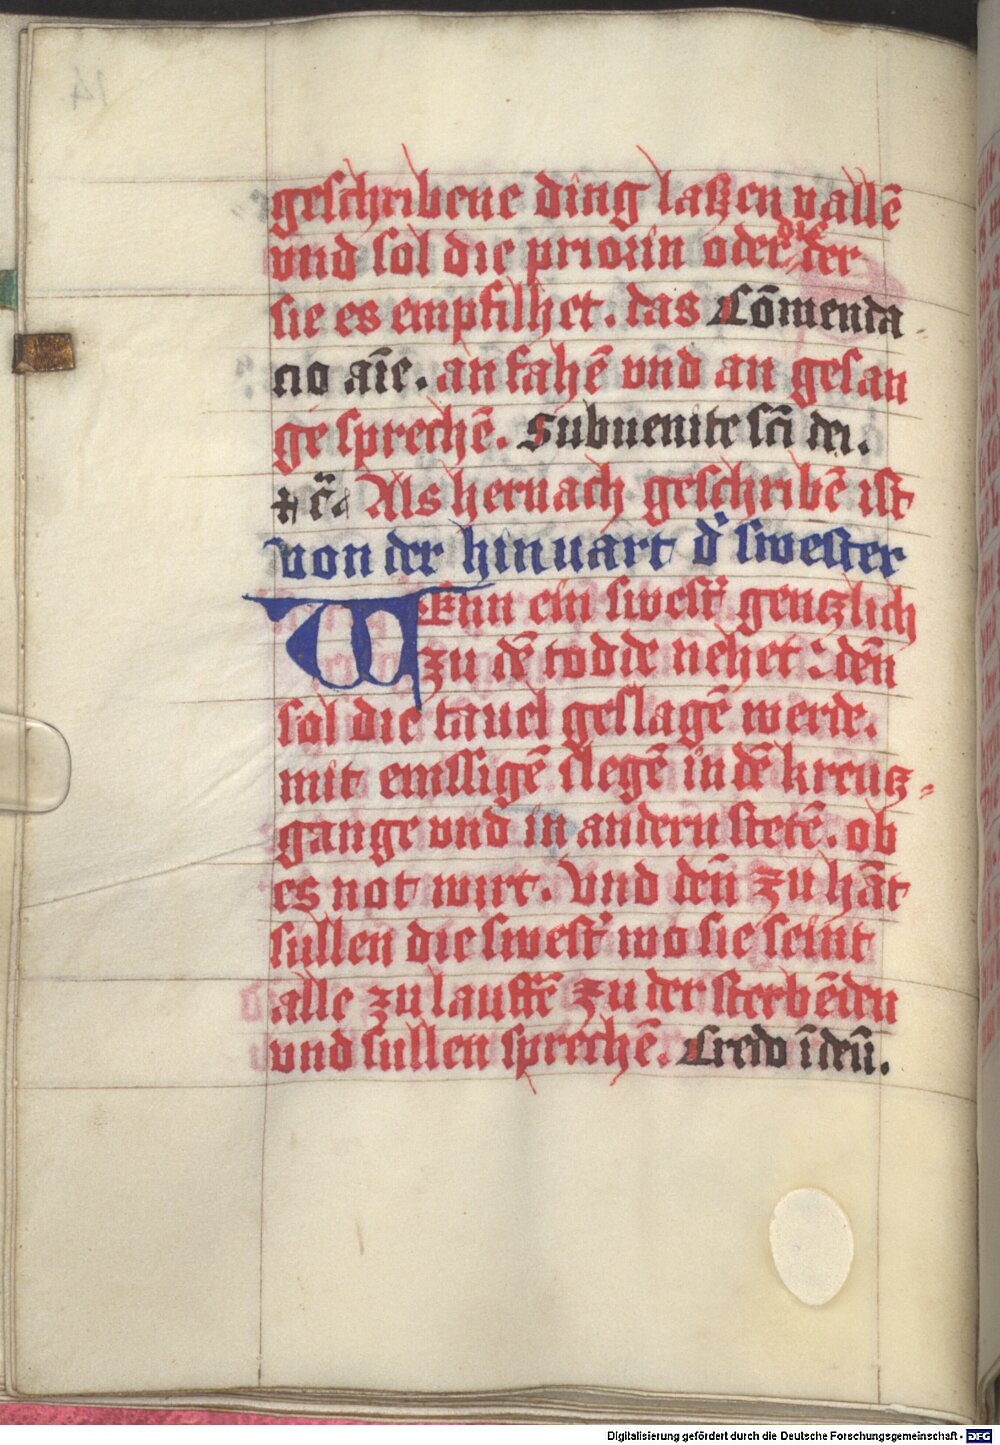 geschribene ding laßen vallē
vnd sol die priorin oder die der
sie es empfilhet. das Cōmenda
cio aīe. an fahē vnd an gesan
ge sprechē. Subuenite scī dei.
⁊ cͤ Als hernach geschribē ist
von der hinuart d' swester
Wenn ein swest' gentzlich
zu dē todde nehet: deñ
sol die tauel geslagē werde.
mit emssigē slegē in dē kreutz
gange vnd in andern stetē. ob
es not wirt. Vnd deñ zu hāt
sullen die swest' wo sie seint
alle zu lauffē zu der sterbēden
vnd sullen sprechē. Credo ī deū.
Digitalisierung gefördert durch die Deutsche Forschungsgemeinschaft - DFG